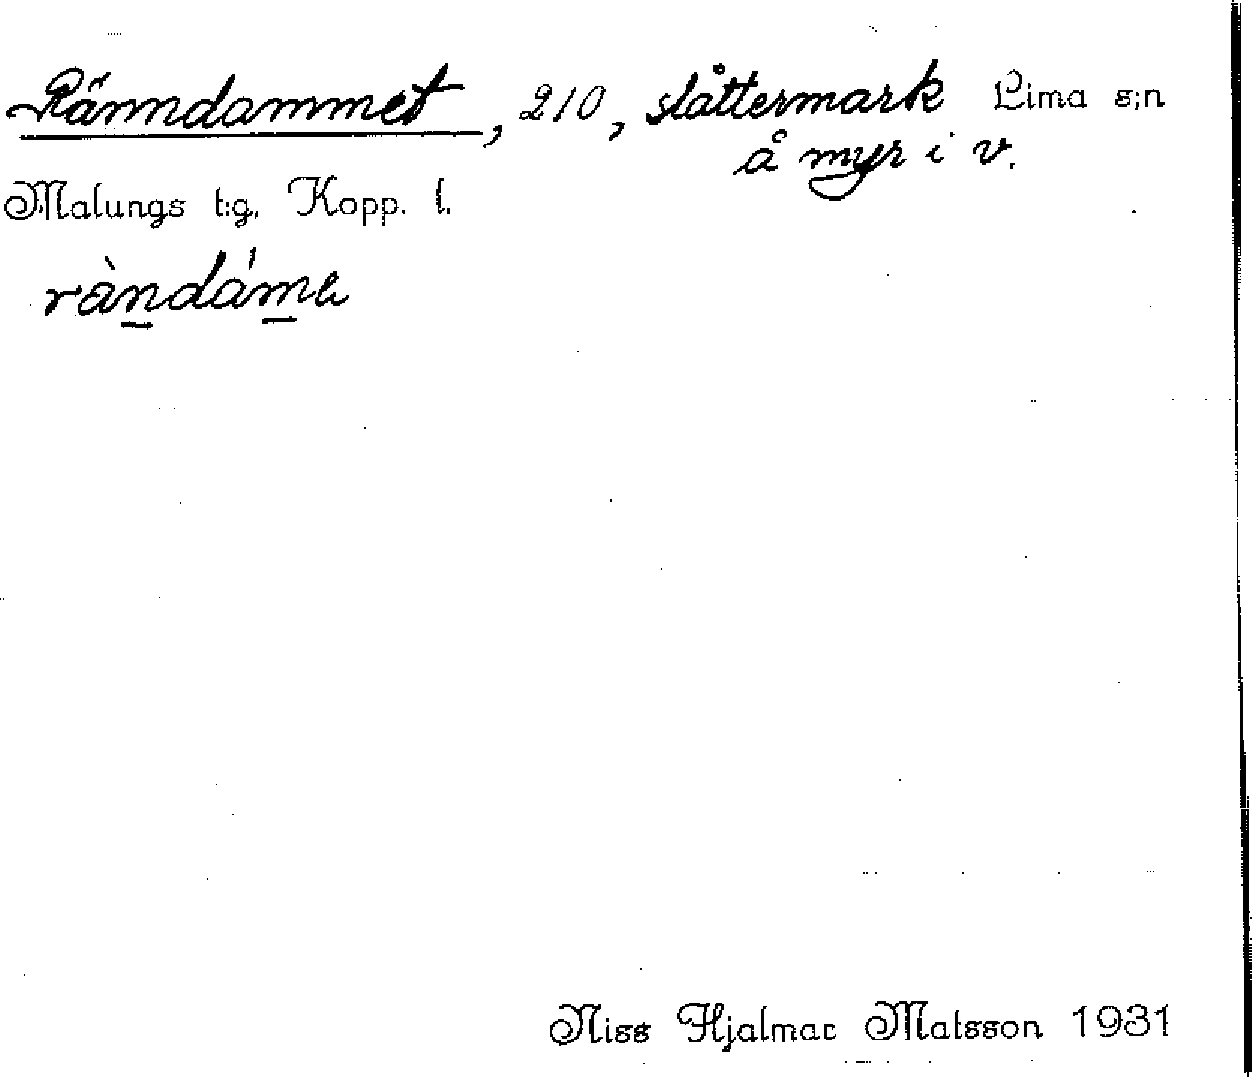 Ränndammet, 210, slåttermark Lima s;n
å myr i v.
Malungs t:g. Kopp. l.
ràndáma
Niss Hjalmar Matsson 1931